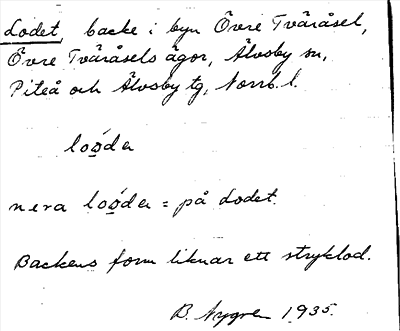 Lodet, backe i byn Övre Tväråsel,
Övre Tväråsels ägor, Älvsby sn,
Piteå och Älvsby tg, Norrb. l.
loó̱da
nera loó̱da = på Lodet.
Backens form liknar ett stryklod.
B. Nygren 1935.